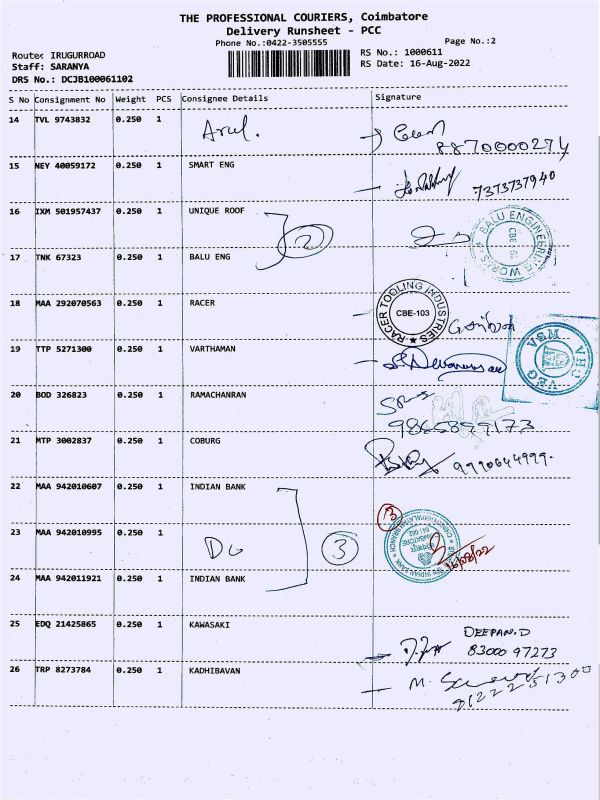 THE PROFESSIONAL COURIERS, Coimbatore
Delivery Runsheet - PCC
Phone No.:0422-3505555
Page No.:2
Route: IRUGURROAD
RS No.: 1000611
Staff: SARANYA
RS Date: 16-Aug-2022
DRS No.: DCJB100061102
S No Consignment No Weight PCS Consignee Details Signature
14 TVL 9743832 0.250 1 Arul.
8870000274
15 NEY 40059172 0.250 1 SMART ENG
7373737940
16 IXM 501957437 0.250 1 UNIQUE ROOF
2
BALU ENGINEERING WORKS
CBE - 62
17 TNK 67323 0.250 1 BALU ENG
18 MAA 292070563 0.250 1 RACER
RACER TOOLING INDUSTRIES
CBE-103
19 TTP 5271300 0.250 1 VARTHAMAN
20 BOD 326823 0.250 1 RAMACHANRAN
9865899173
21 MTP 3002837 0.250 1 COBURG
9990644999.
22 MAA 942010607 0.250 1 INDIAN BANK
3
23 MAA 942010995 0.250 1 Do
3
INDIAN BANK
16/08/22
24 MAA 942011921 0.250 1 INDIAN BANK
25 EDQ 21425865 0.250 1 KAWASAKI
DEEPAN.D
83000 97273
26 TRP 8273784 0.250 1 KADHIBAVAN